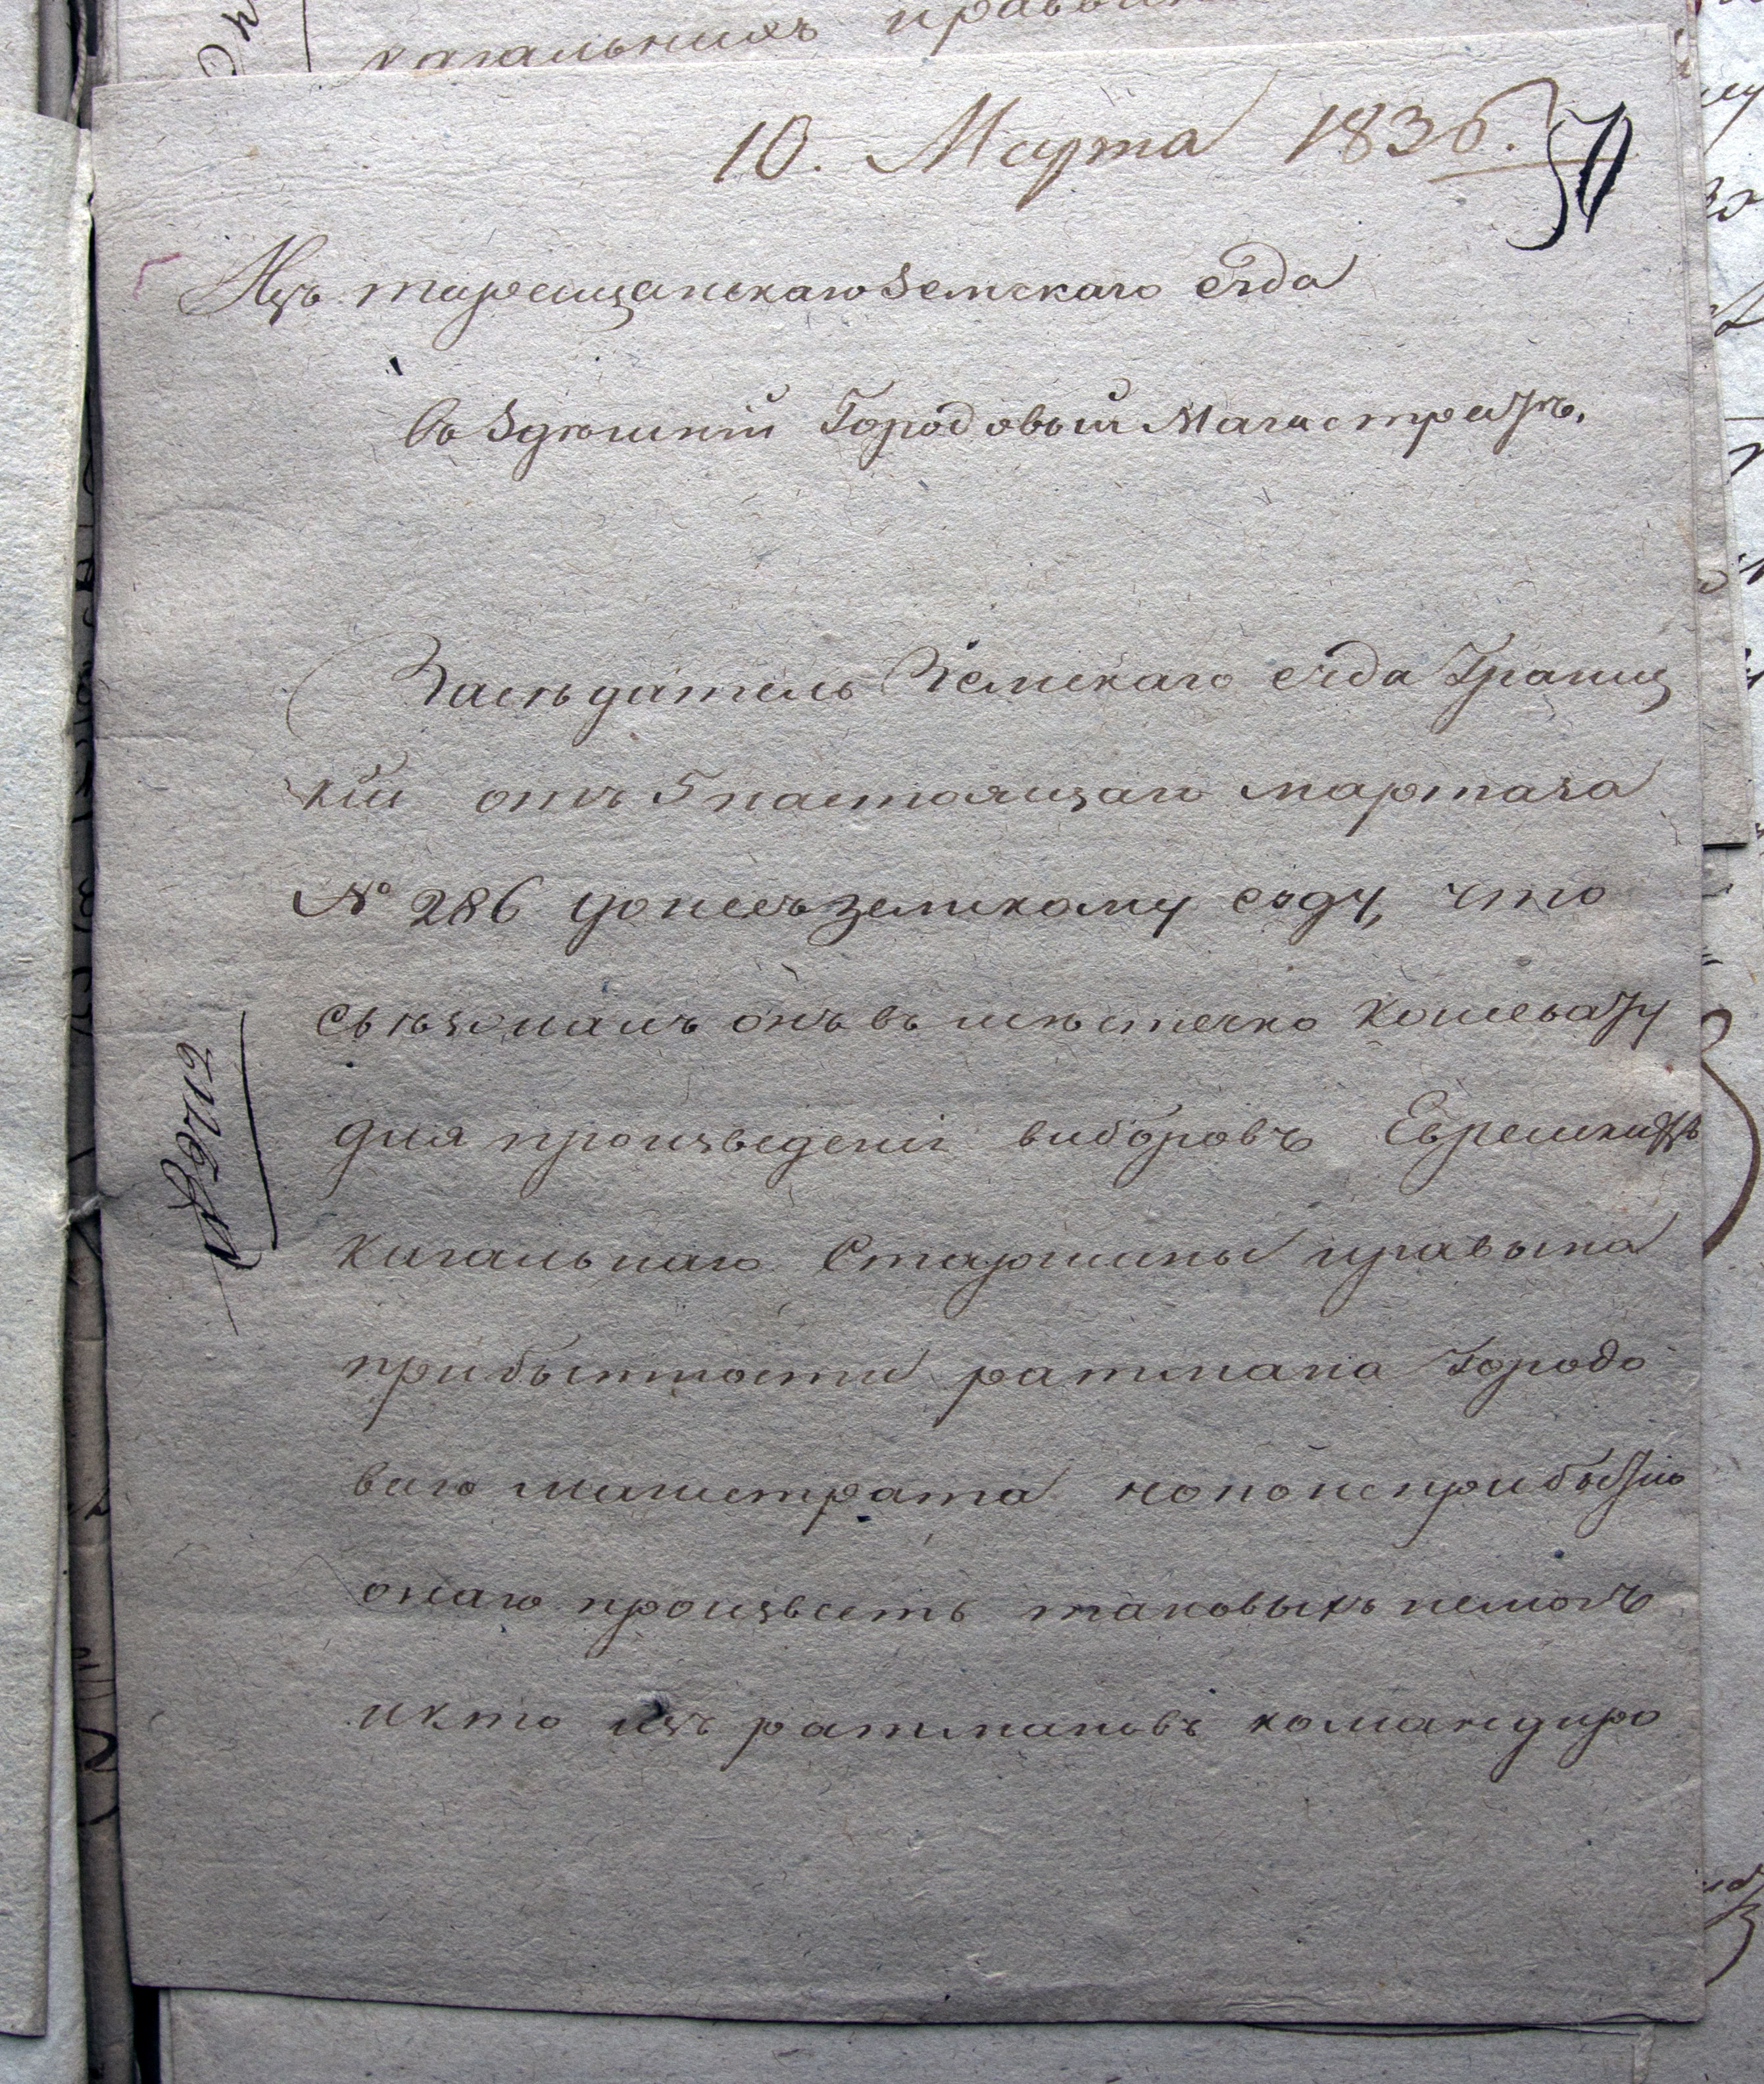 кагальныхъ
10. Марта 1836.
50
Изъ таращанскаго Земскаго суда
въ Здѣшній Городовый Магистратъ.
Засѣдатель Земскаго суда Границ
кій отъ 5 настоящаго марта за
№ 286 донесъ земскому суду, что
съѣзжалъ онъ въ мѣстечко Кошевату
для произведенія виборовъ Еврейскихъ
кагальнаго Старшины
прибытности ратмана Городо
ваго магистрата но по неприбытію
онаго произвесть таковыхъ немогъ
икто изъ ратмановъ командиро
№ 2712